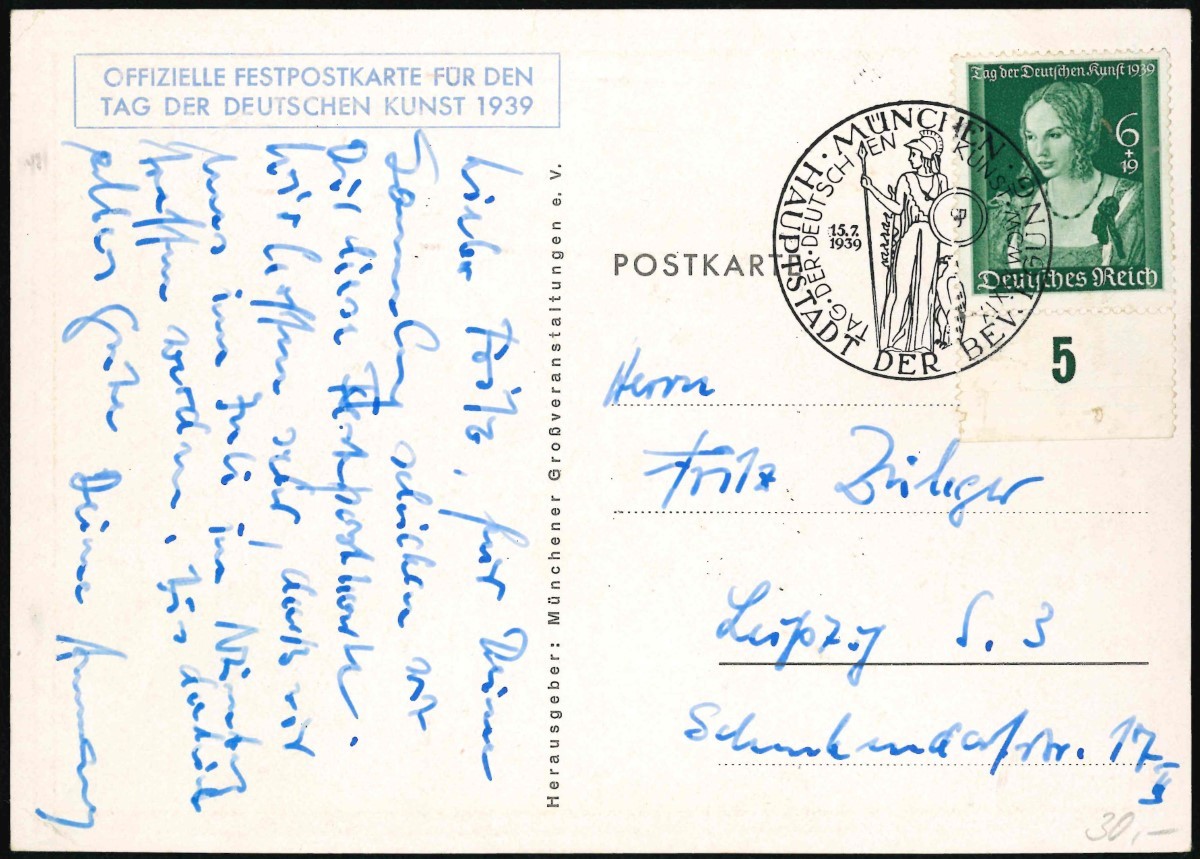 OFFIZIELLE FESTPOSTKARTE FÜR DEN
TAG DER DEUTSCHEN KUNST 1939
Lieber Fritz, für Deine
Sammlung schicken wir
Dir diese Festpostkarte.
Wir hoffen sehr, dass wir
uns im Juli in
treffen werden. Bis dahin
alles Gute Deine
Herausgeber: Münchener Großveranstaltungen e. V.
POSTKARTE
MÜNCHEN · HAUPTSTADT DER BEWEGUNG ·
TAG · DER · DEUTSCHEN KUNST
15.7.
1939
Tag der Deutschen Kunst 1939
6
+
19
Deutsches Reich
5
Herrn
Fritz
Leipzig S. 3
Schenkendorfstr. 17
30,—